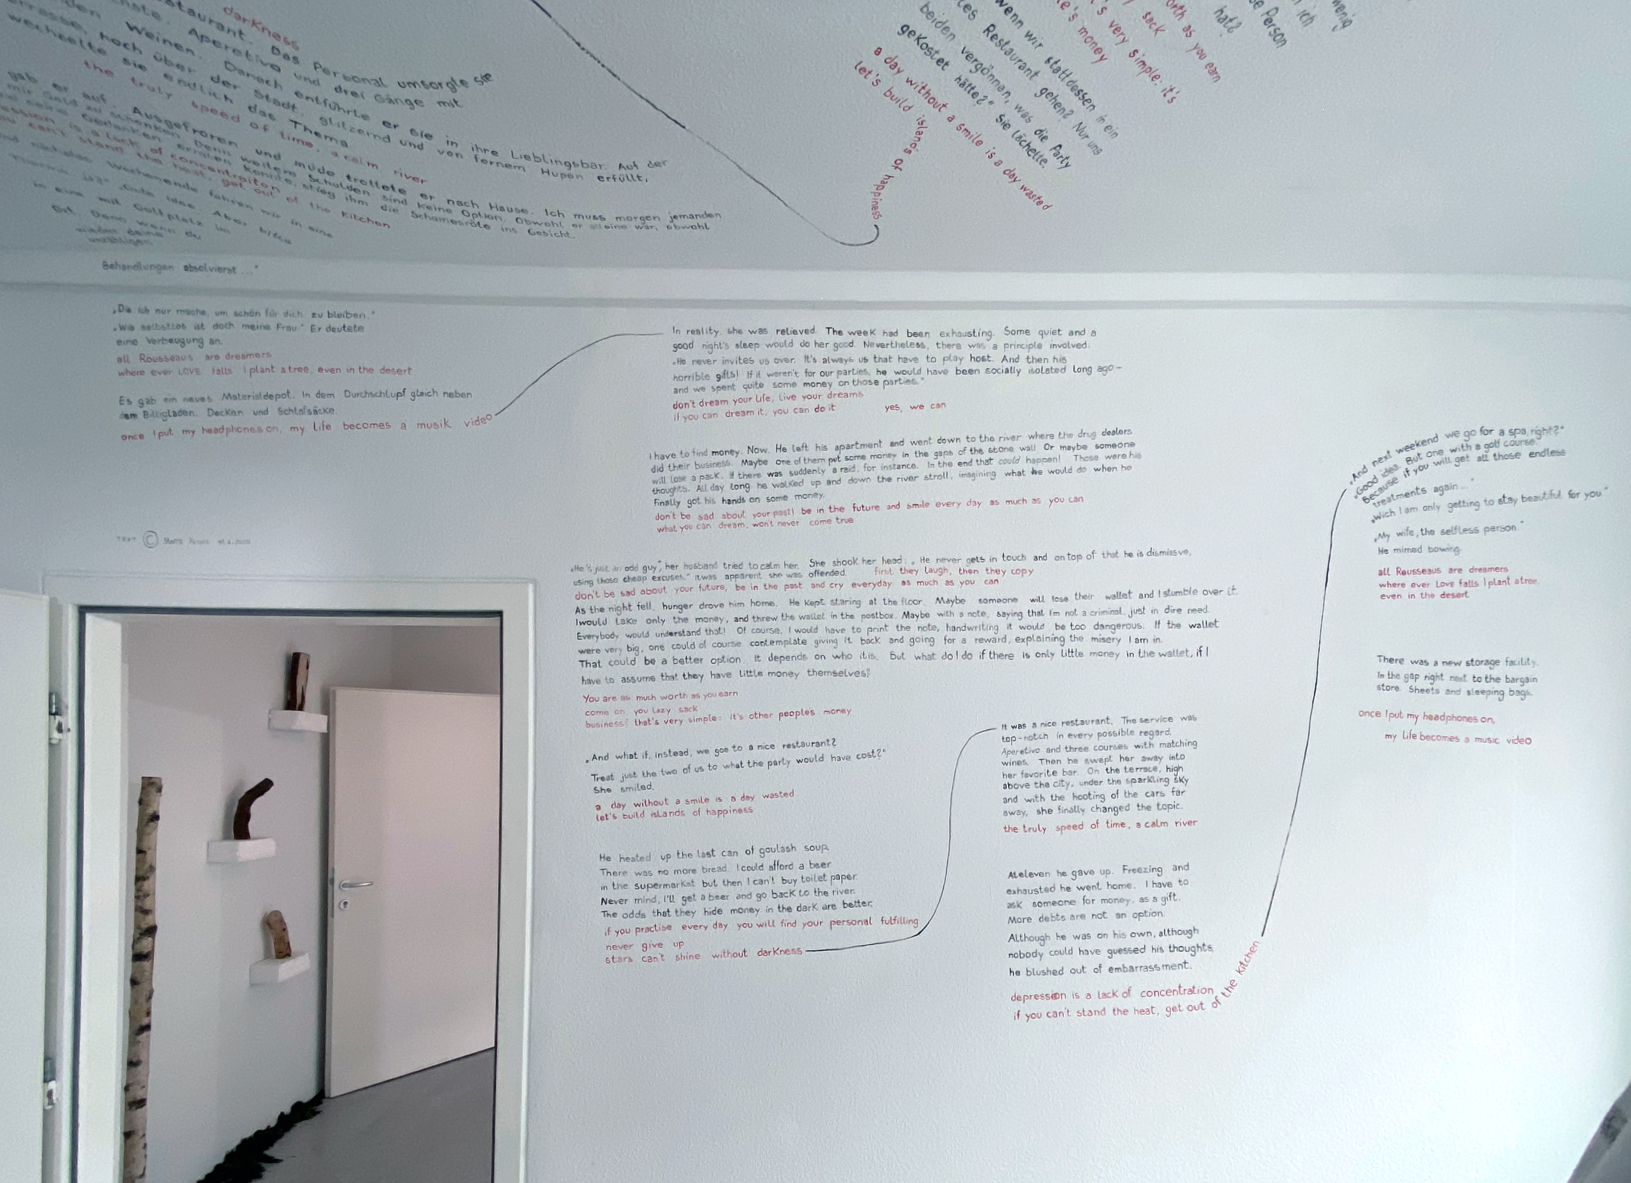 darkness
Restaurant. Das Personal umsorgte sie
Aperetivo und drei Gänge mit
Weinen. Danach entführte er sie in ihre Lieblingsbar. Auf der
hoch über der Stadt, glitzernd und von fernem Hupen erfüllt,
sie endlich das Thema
the truly speed of time, a calm river
gab er auf. Ausgefroren und müde trottete er nach Hause. Ich muss morgen jemanden
Schulden sind keine Option. Obwohl er alleine war, obwohl
stieg ihm die Schamesröte ins Gesicht.
depression is a lack of concentration
can't stand the heat, get out of the kitchen
fahren wir in eine
Behandlungen absolvierst ..."
wenn wir stattdessen in ein
Restaurant gehen? Nur uns
beiden vergönnen, was die Party
gekostet hätte?" Sie lächelte.
a day without a smile is a day wasted
let's build islands of happiness
„Die ich nur mache, um schön für dich zu bleiben."
„Wie selbstlos ist doch meine Frau" Er deutete
eine Verbeugung an.
all Rousseaus are dreamers
where ever LOVE falls I plant a tree, even in the desert
Es gab ein neues Materialdepot. In dem Durchschlupf gleich neben
dem Billigladen. Decken und Schlafsäcke.
once I put my headphones on, my life becomes a musik video
TEXT ©
In reality, she was relieved. The week had been exhausting. Some quiet and a
good night's sleep would do her good. Nevertheless, there was a principle involved:
„He never invites us over. It's always us that have to play host. And then his
horrible gifts! If it weren't for our parties, he would have been socially isolated long ago –
and we spent quite some money on those parties."
don't dream your life, live your dreams
if you can dream it, you can do it yes, we can
I have to find money. Now. He left his apartment and went down to the river where the drug dealers
did their business. Maybe one of them put some money in the gaps of the stone wall. Or maybe someone
will lose a pack, if there was suddenly a raid, for instance. In the end that could happen! Those were his
thoughts. All day long, he walked up and down the river stroll, imagining what he would do when he
finally got his hands on some money.
don't be sad about your past! be in the future and smile every day as much as you can
what you can dream, won't never come true
„He's just an odd guy", her husband tried to calm her. She shook her head: „He never gets in touch and on top of that he is dismissive,
using those cheap excuses." It was apparent she was offended. first they laugh, then they copy
don't be sad about your future, be in the past and cry everyday as much as you can
As the night fell, hunger drove him home. He kept staring at the floor. Maybe someone will lose their wallet and I stumble over it.
I would take only the money, and threw the wallet in the postbox. Maybe with a note, saying that I'm not a criminal, just in dire need.
Everybody would understand that! Of course, I would have to print the note, handwriting it would be too dangerous. If the wallet
were very big, one could of course contemplate giving it back and going for a reward, explaining the misery I am in.
That could be a better option. It depends on who it is. But what do I do if there is only little money in the wallet, if I
have to assume that they have little money themselves?
You are as much worth as you earn
come on, you lazy sack
business? that's very simple: it's other peoples money
„And what if, instead, we goe to a nice restaurant?
Treat just the two of us to what the party would have cost?"
She smiled.
a day without a smile is a day wasted
let's build islands of happiness
He heated up the last can of goulash soup.
There was no more bread. I could afford a beer
in the supermarket but then I can't buy toilet paper.
Never mind, I'll get a beer and go back to the river.
The odds that they hide money in the dark are better.
if you practise every day you will find your personal fulfilling
never give up
stars can't shine without darkness
It was a nice restaurant. The service was
top-notch in every possible regard.
Aperetivo and three courses with matching
wines. Then he swept her away into
her favorite bar. On the terrace, high
above the city, under the sparkling sky
and with the hooting of the cars far
away, she finally changed the topic.
the truly speed of time, a calm river
At eleven he gave up. Freezing and
exhausted he went home. I have to
ask someone for money, as a gift.
More debts are not an option.
Although he was on his own, although
nobody could have guessed his thoughts,
he blushed out of embarrassment.
depression is a lack of concentration
if you can't stand the heat, get out of the kitchen
„And next weekend we go for a spa, right?"
„Good idea. But one with a golf course.
Because if you will get all those endless
treatments again..."
„Wich I am only getting to stay beautiful for you."
„My wife, the selfless person."
He mimed bowing.
all Rousseaus are dreamers
where ever Love falls I plant a tree,
even in the desert
There was a new storage facility.
In the gap right next to the bargain
store. Sheets and sleeping bags.
once I put my headphones on,
my life becomes a music video